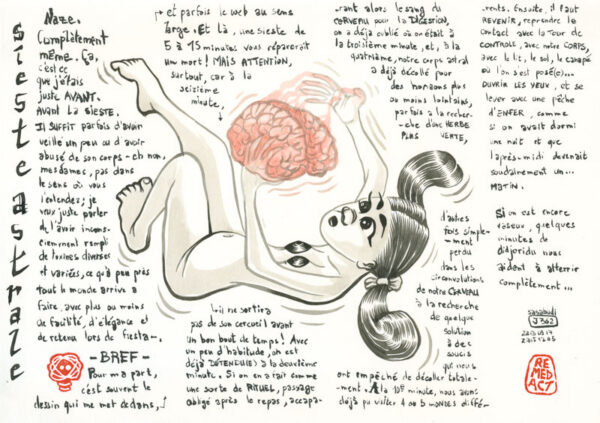 sieste astrale
Naze.
Complètement
même. Ça,
c'est ce
que j'étais
juste AVANT.
Avant la SIESTE.
Il suffit parfois d'avoir
veillé un peu ou d'avoir
abusé de son corps - eh non,
mesdames, pas dans
le sens où vous
l'entendez; je
veux juste parler
de l'avoir incons-
ciemment rempli
de toxines diverses
et variées, ce qu'à peu près
tout le monde arrive à
faire, avec plus ou moins
de facilité, d'élégance et
de retenu lors de fiesta-.
- BREF -
Pour ma part,
c'est souvent le
dessin qui me met dedans,
et parfois le web au sens
large. Et là, une sieste de
5 à 15 minutes vous réparerait
un mort! MAIS ATTENTION,
surtout, car à la
seizième
minute,
Lui ne sortira
pas de son cercueil avant
un bon bout de temps! Avec
un peu d'habitude, on est
déjà DÉTENDU(E) à la deuxième
minute. Si on en a fait comme
une sorte de RITUEL, passage
obligé après le repas, accapa-
rant alors le sang du
CERVEAU pour la DIGESTION,
on a déjà oublié où on était à
la troisième minute, et, à la
quatrième, notre corps astral
a déjà décollé pour
des horizons plus
ou moins lointains,
parfois à la recher-
che d'une HERBE
PLUS VERTE,
d'autres
fois simple-
ment
perdu
dans les
circonvolutions
de notre CERVEAU
à la recherche
de quelque
solution
à des
soucis
qui nous
ont empêché de décoller totale-
ment. À la 10e minute, nous avons
déjà pu visiter 4 ou 5 mondes diffé-
rents. Ensuite, il faut
REVENIR, reprendre le
contact avec la Tour de
CONTROLE, avec notre CORPS,
avec le lit, le sol, le canapé
où l'on s'est posé(e)...
OUVRIR LES YEUX, et se
lever avec une pêche
d'ENFER, comme
si on avait dormi
une nuit et que
l'après-midi devenait
soudainement un...
MATIN.
Si on est encore
vaseux, quelques
minutes de
didjeridu nous
aident à atterrir
complètement...
REMED
ACT